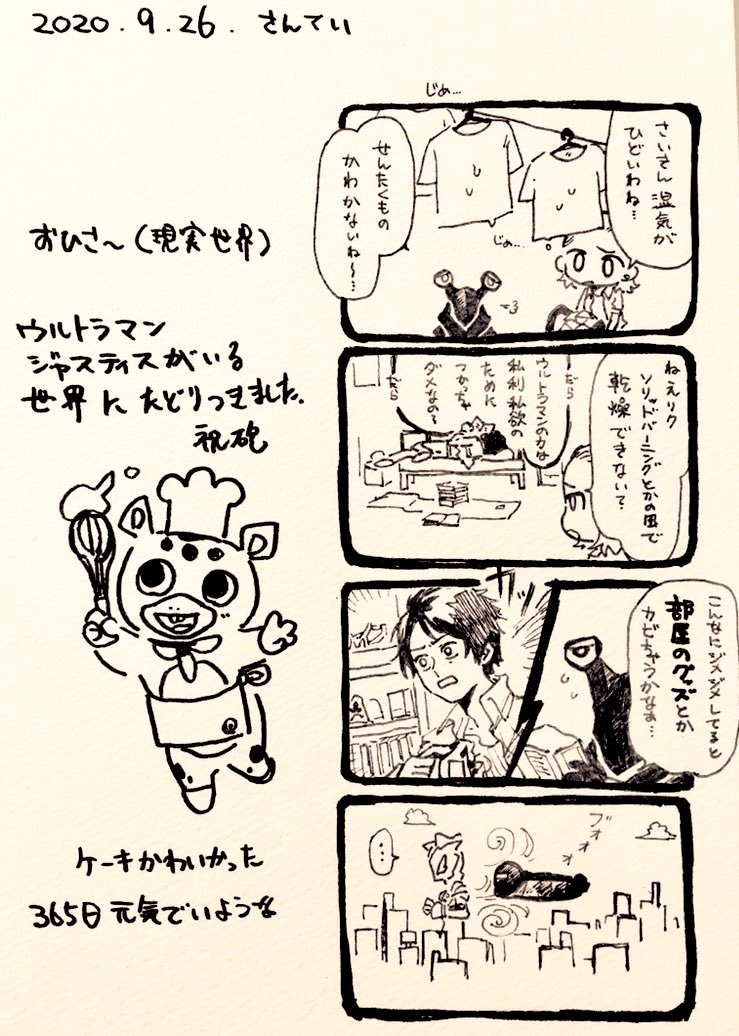 2020.9.26. さんてい
おひさ〜(現実世界)
ウルトラマン
ジャスティスがいる
世界に たどりつきました.
祝砲
ケーキかわいかった
365日 元気でいような
じめ…
さいきん 湿気が
ひどいわね…
せんたくもの
かわかないね〜…
じめ…
ねえリク
ソリッドバーニングとかの風で
乾燥できない?
だら
ウルトラマンの力は
私利私欲の
ために
つかっちゃ
ダメなの?
だら
こんなにジメジメしてると
部屋のグッズとか
カビちゃうかなぁ…
ガッ
ブォォォ
…